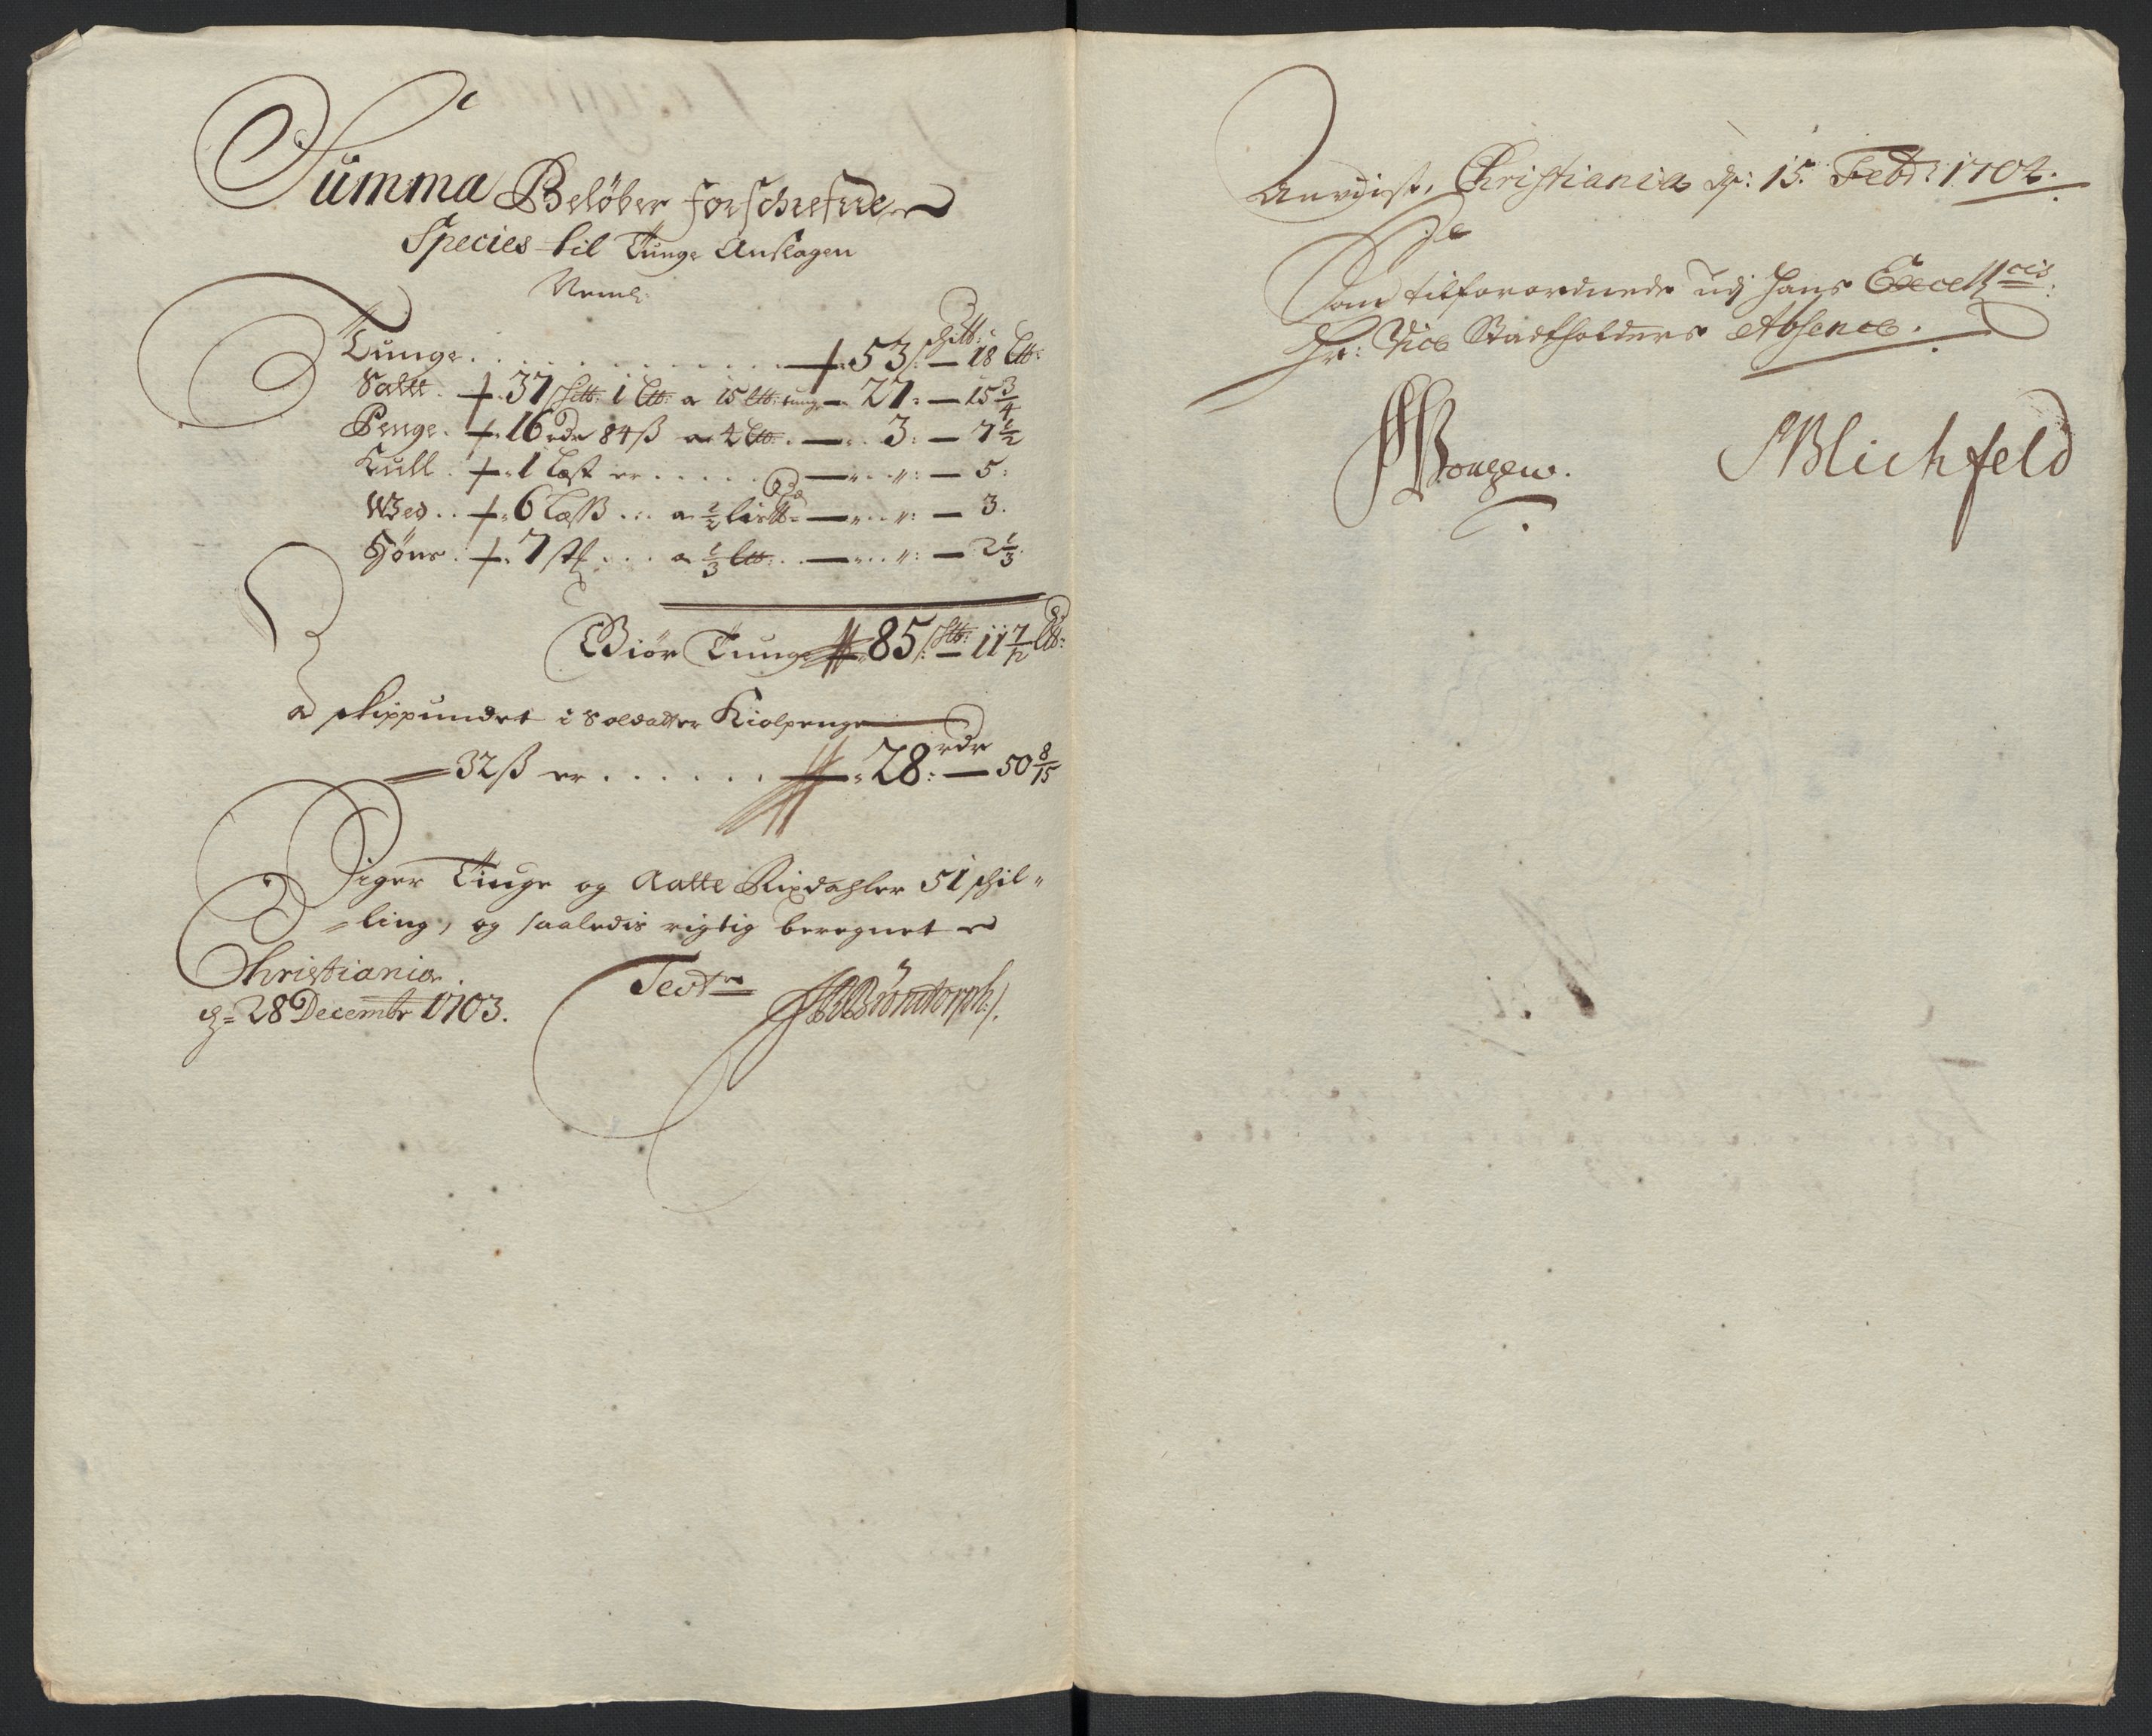 Summa Beløber forschrefne
Species til Tunge Anslagen
Neml:
Tunge . . . . . . . . 53 sch℔: — 18 L℔:
Saltt . 37 sch℔: 1 L℔: a 15 L℔: tunge — 27: — 15 3/4
Penge . 16 rdr 84 ß a 4 L℔: — 3: — 7 1/2
Kull . 1 Læst er . . . . . — „ : — 5:
Wed . . 6 Læss . . . a 1/2 lis℔: — „ : — 3.
Høns . 7 st: . . . a 1/3 L℔: . — „ : — 2 1/3
Giør Tunge 85 sch℔: — 11 7/12 L℔:
a skippundet i Soldatter Kiolpenge
32 ß er . . . . . . 28: rdr — 50 8/15
Siger Tiuge og Aatte Rixdahler 51 skil-
ling, og saaledis rigtig beregnet
Christiania
d: 28 Decembr 1703.
Test:
Anvdist, Christiania d: 15. Febr: 1704.
Som tilforordnede udj Hans Excellcis:
Hr: Vice Stadtholders Absence.
SBlichfeld